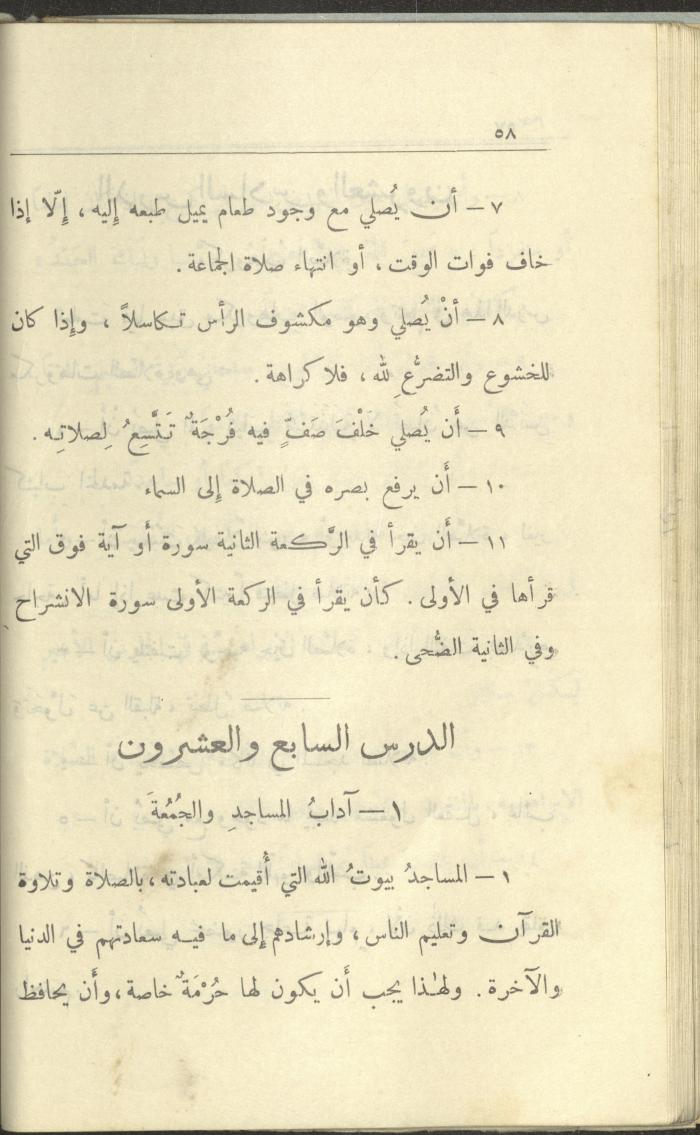 ٥٨
٧ — أن يُصلي مع وجود طعام يميل طبعه إليه ، إلّا إذا
خاف فوات الوقت ، أو انتهاء صلاة الجماعة .
٨ — أنْ يُصلي وهو مكشوف الرأس تكاسلاً ، وإذا كان
للخشوع والتضرُّعِ لله ، فلا كراهة .
٩ — أَن يُصلي خلْفَ صَفٍّ فيه فُرْجَةٌ تَتَّسِعُ لِصلاتِه .
١٠ — أَن يرفع بصره في الصلاة إِلى السماء
١١ — أَن يقرأ في الرَّكعة الثانية سورة أَو آية فوق التي
قرأها في الأولى . كأن يقرأ في الركعة الأولى سورة الانشراح
وفي الثانية الضُّحى .
الدرس السابع والعشرون
١ — آدابُ المساجدِ والجُمُعَةَ
١ — المساجدُ بيوتُ الله التي أُقيمت لعبادته ، بالصلاة وتلاوة
القرآن وتعليم الناس ، وإرشادهم إلى ما فيه سعادتهم في الدنيا
والآخرة . ولهٰذا يجب أَن يكون لها حُرْمَةٌ خاصة ، وأَن يحافظ